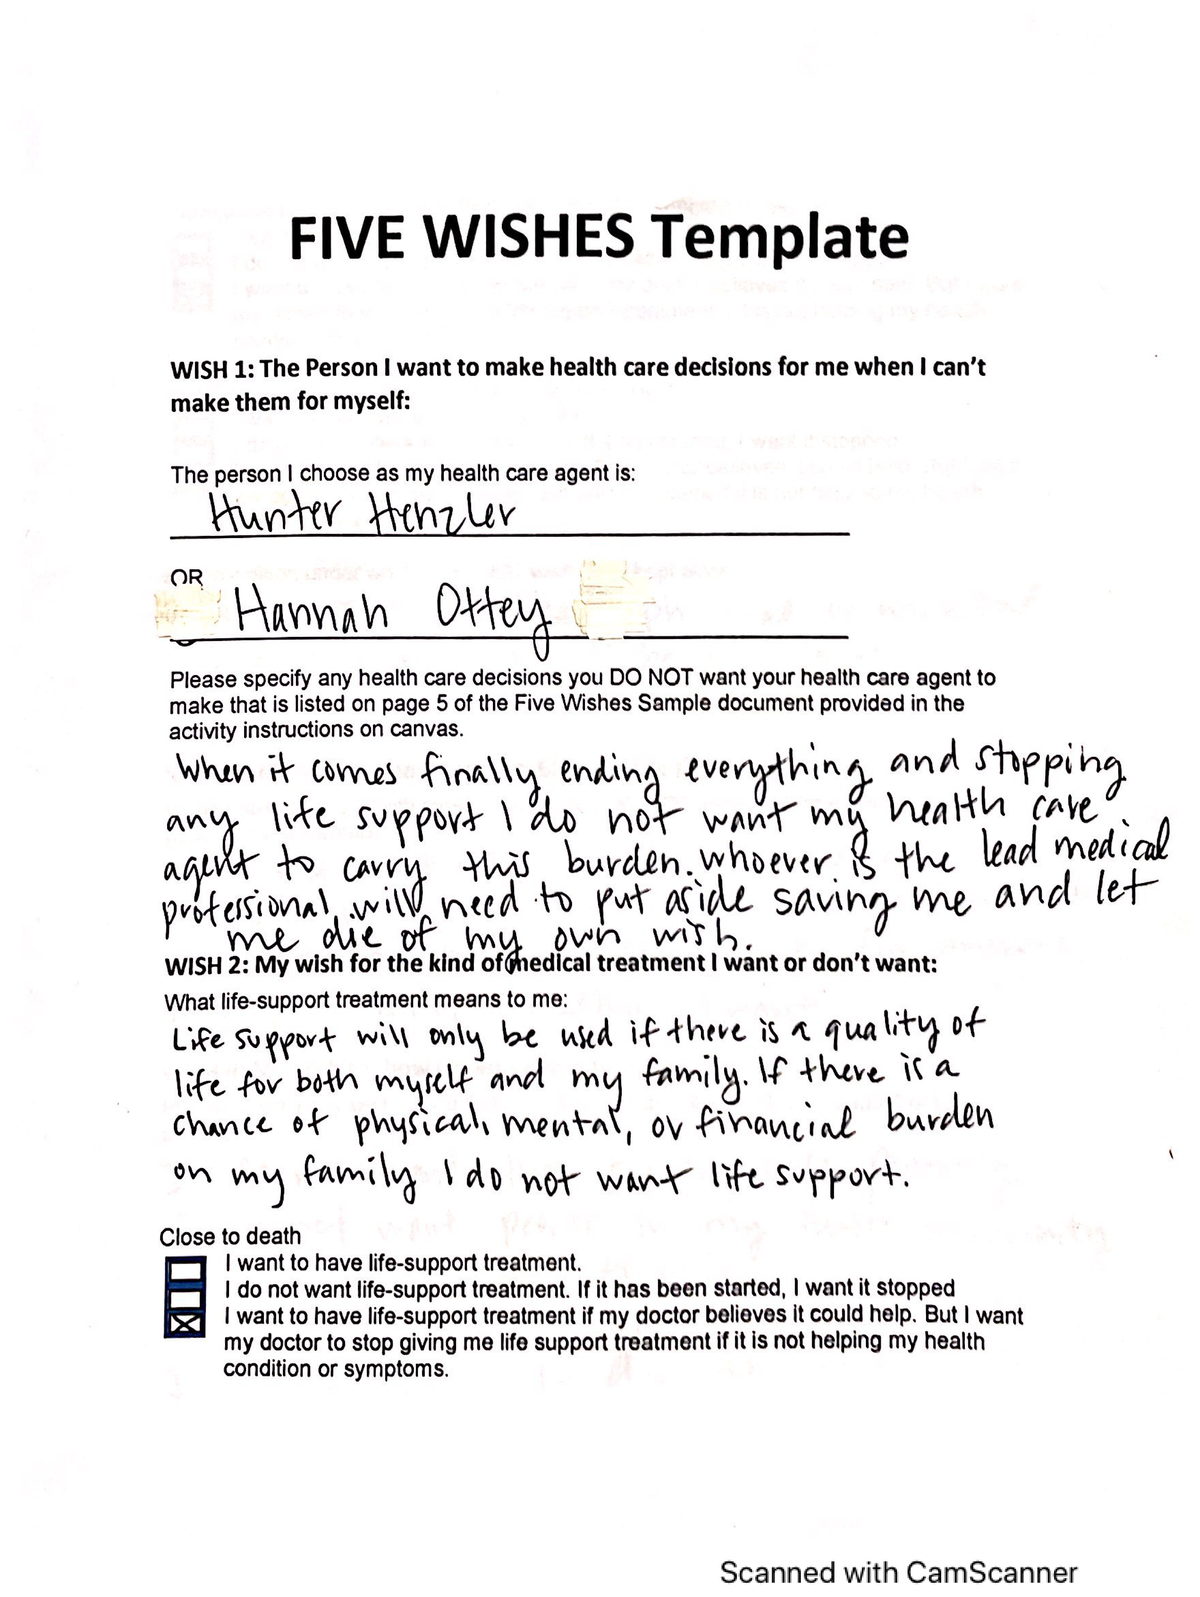 FIVE WISHES Template
WISH 1: The Person I want to make health care decisions for me when I can't
make them for myself:
The person I choose as my health care agent is:
Hunter Henzler
OR
Hannah Ottey
Please specify any health care decisions you DO NOT want your health care agent to
make that is listed on page 5 of the Five Wishes Sample document provided in the
activity instructions on canvas.
When it comes finally ending everything and stopping
any life support I do not want my health care
agent to carry this burden. whoever is the lead medical
professional will need to put aside saving me and let
me die of my own wish.
WISH 2: My wish for the kind of medical treatment I want or don't want:
What life-support treatment means to me:
Life support will only be used if there is a quality of
life for both myself and my family. If there is a
chance of physical, mental, or financial burden
on my family I do not want life support.
Close to death
I want to have life-support treatment.
I do not want life-support treatment. If it has been started, I want it stopped
I want to have life-support treatment if my doctor believes it could help. But I want
my doctor to stop giving me life support treatment if it is not helping my health
condition or symptoms.
Scanned with CamScanner